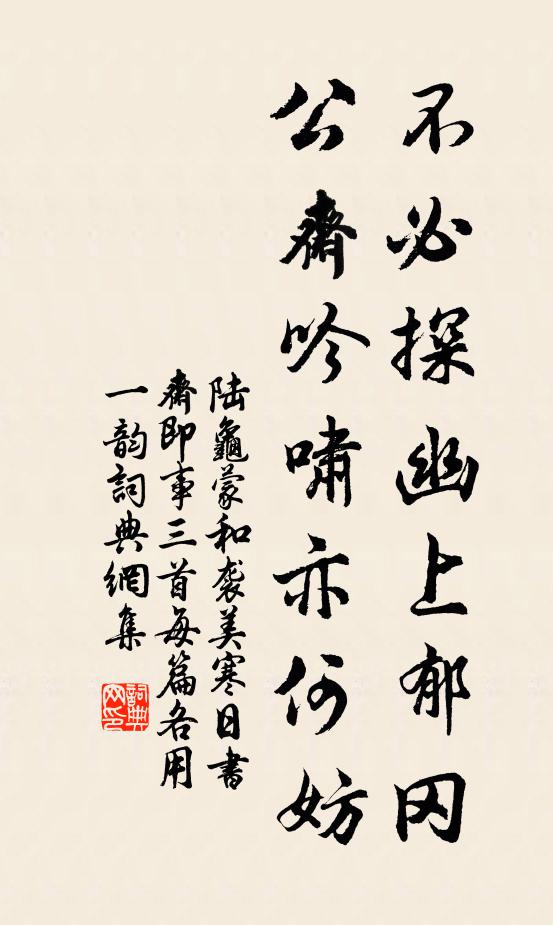 不必探幽上郁冈
公齋吟嘯亦何妨
陆龜蒙和袭美寒日書
齋即事三首每篇各用
一韵詞典網集
詞典
网印